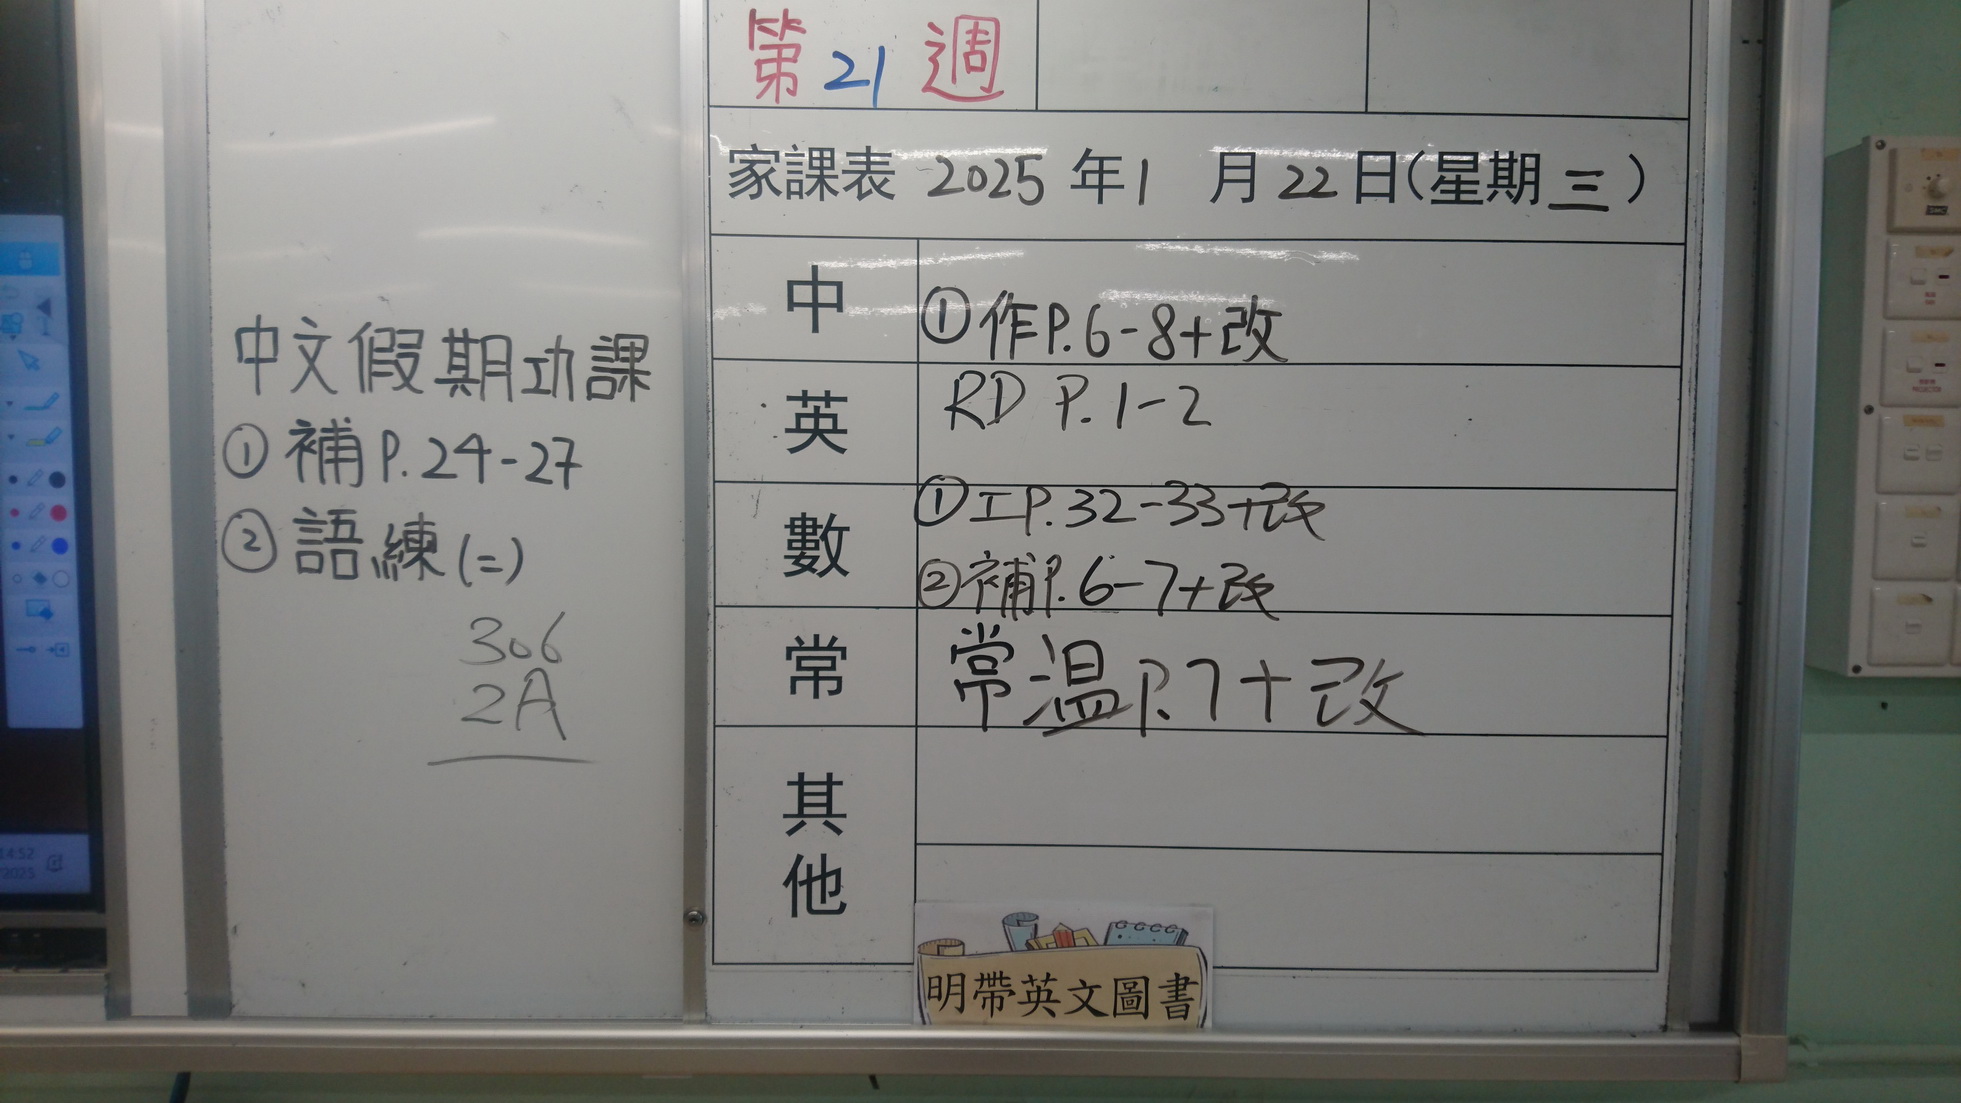 第21週
家課表 2025年1月22日(星期三)
中 ①作P.6-8+改
英 RD P.1-2
數 ①工P.32-33+改
②補P.6-7+改
常 常温P.7+改
其他
明帶英文圖書
中文假期功課
①補P.24-27
②語練(二)
306
2A
14:52